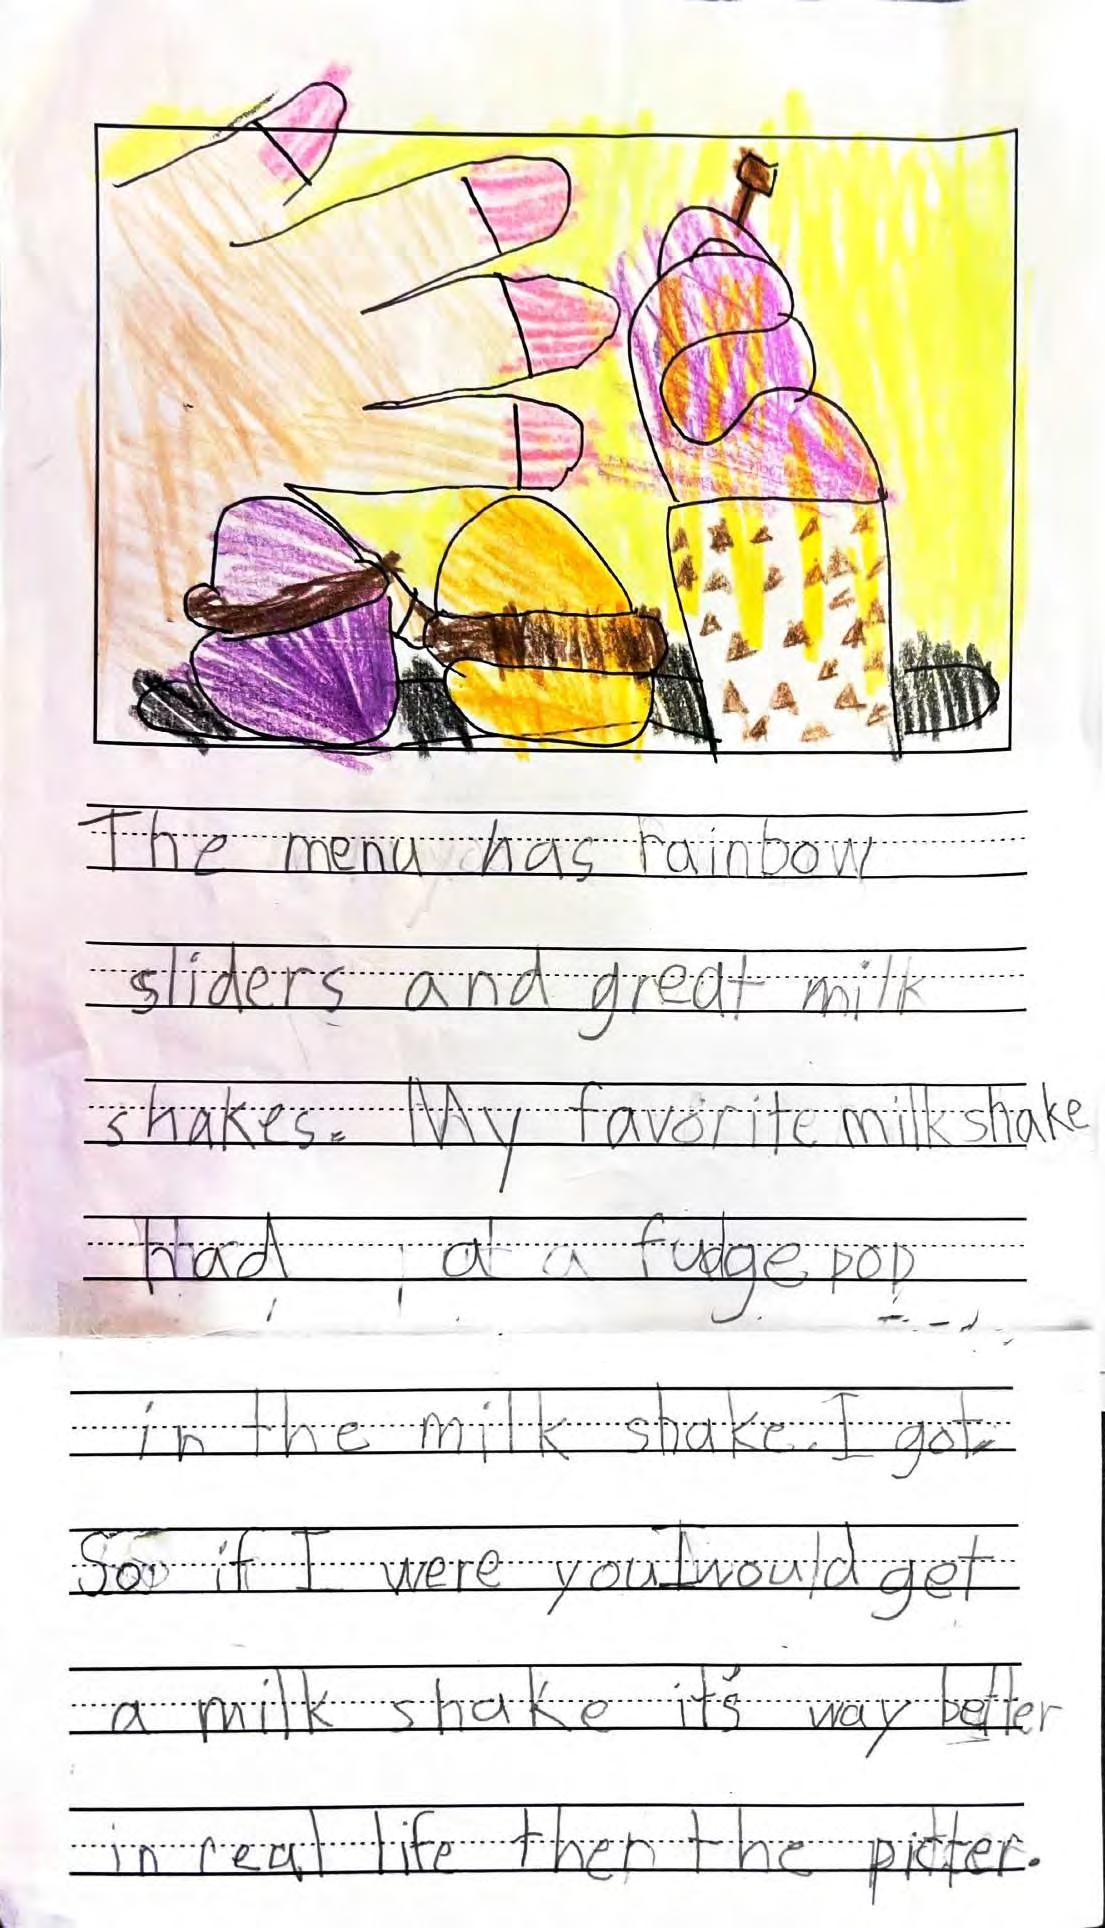 The menu has rainbow
sliders and great milk
shakes. My favorite milkshake
Had at a fudge pop
in the milk shake. I got
Soo if I were you I would get
a milk shake it's way better
in real life then the pictter.